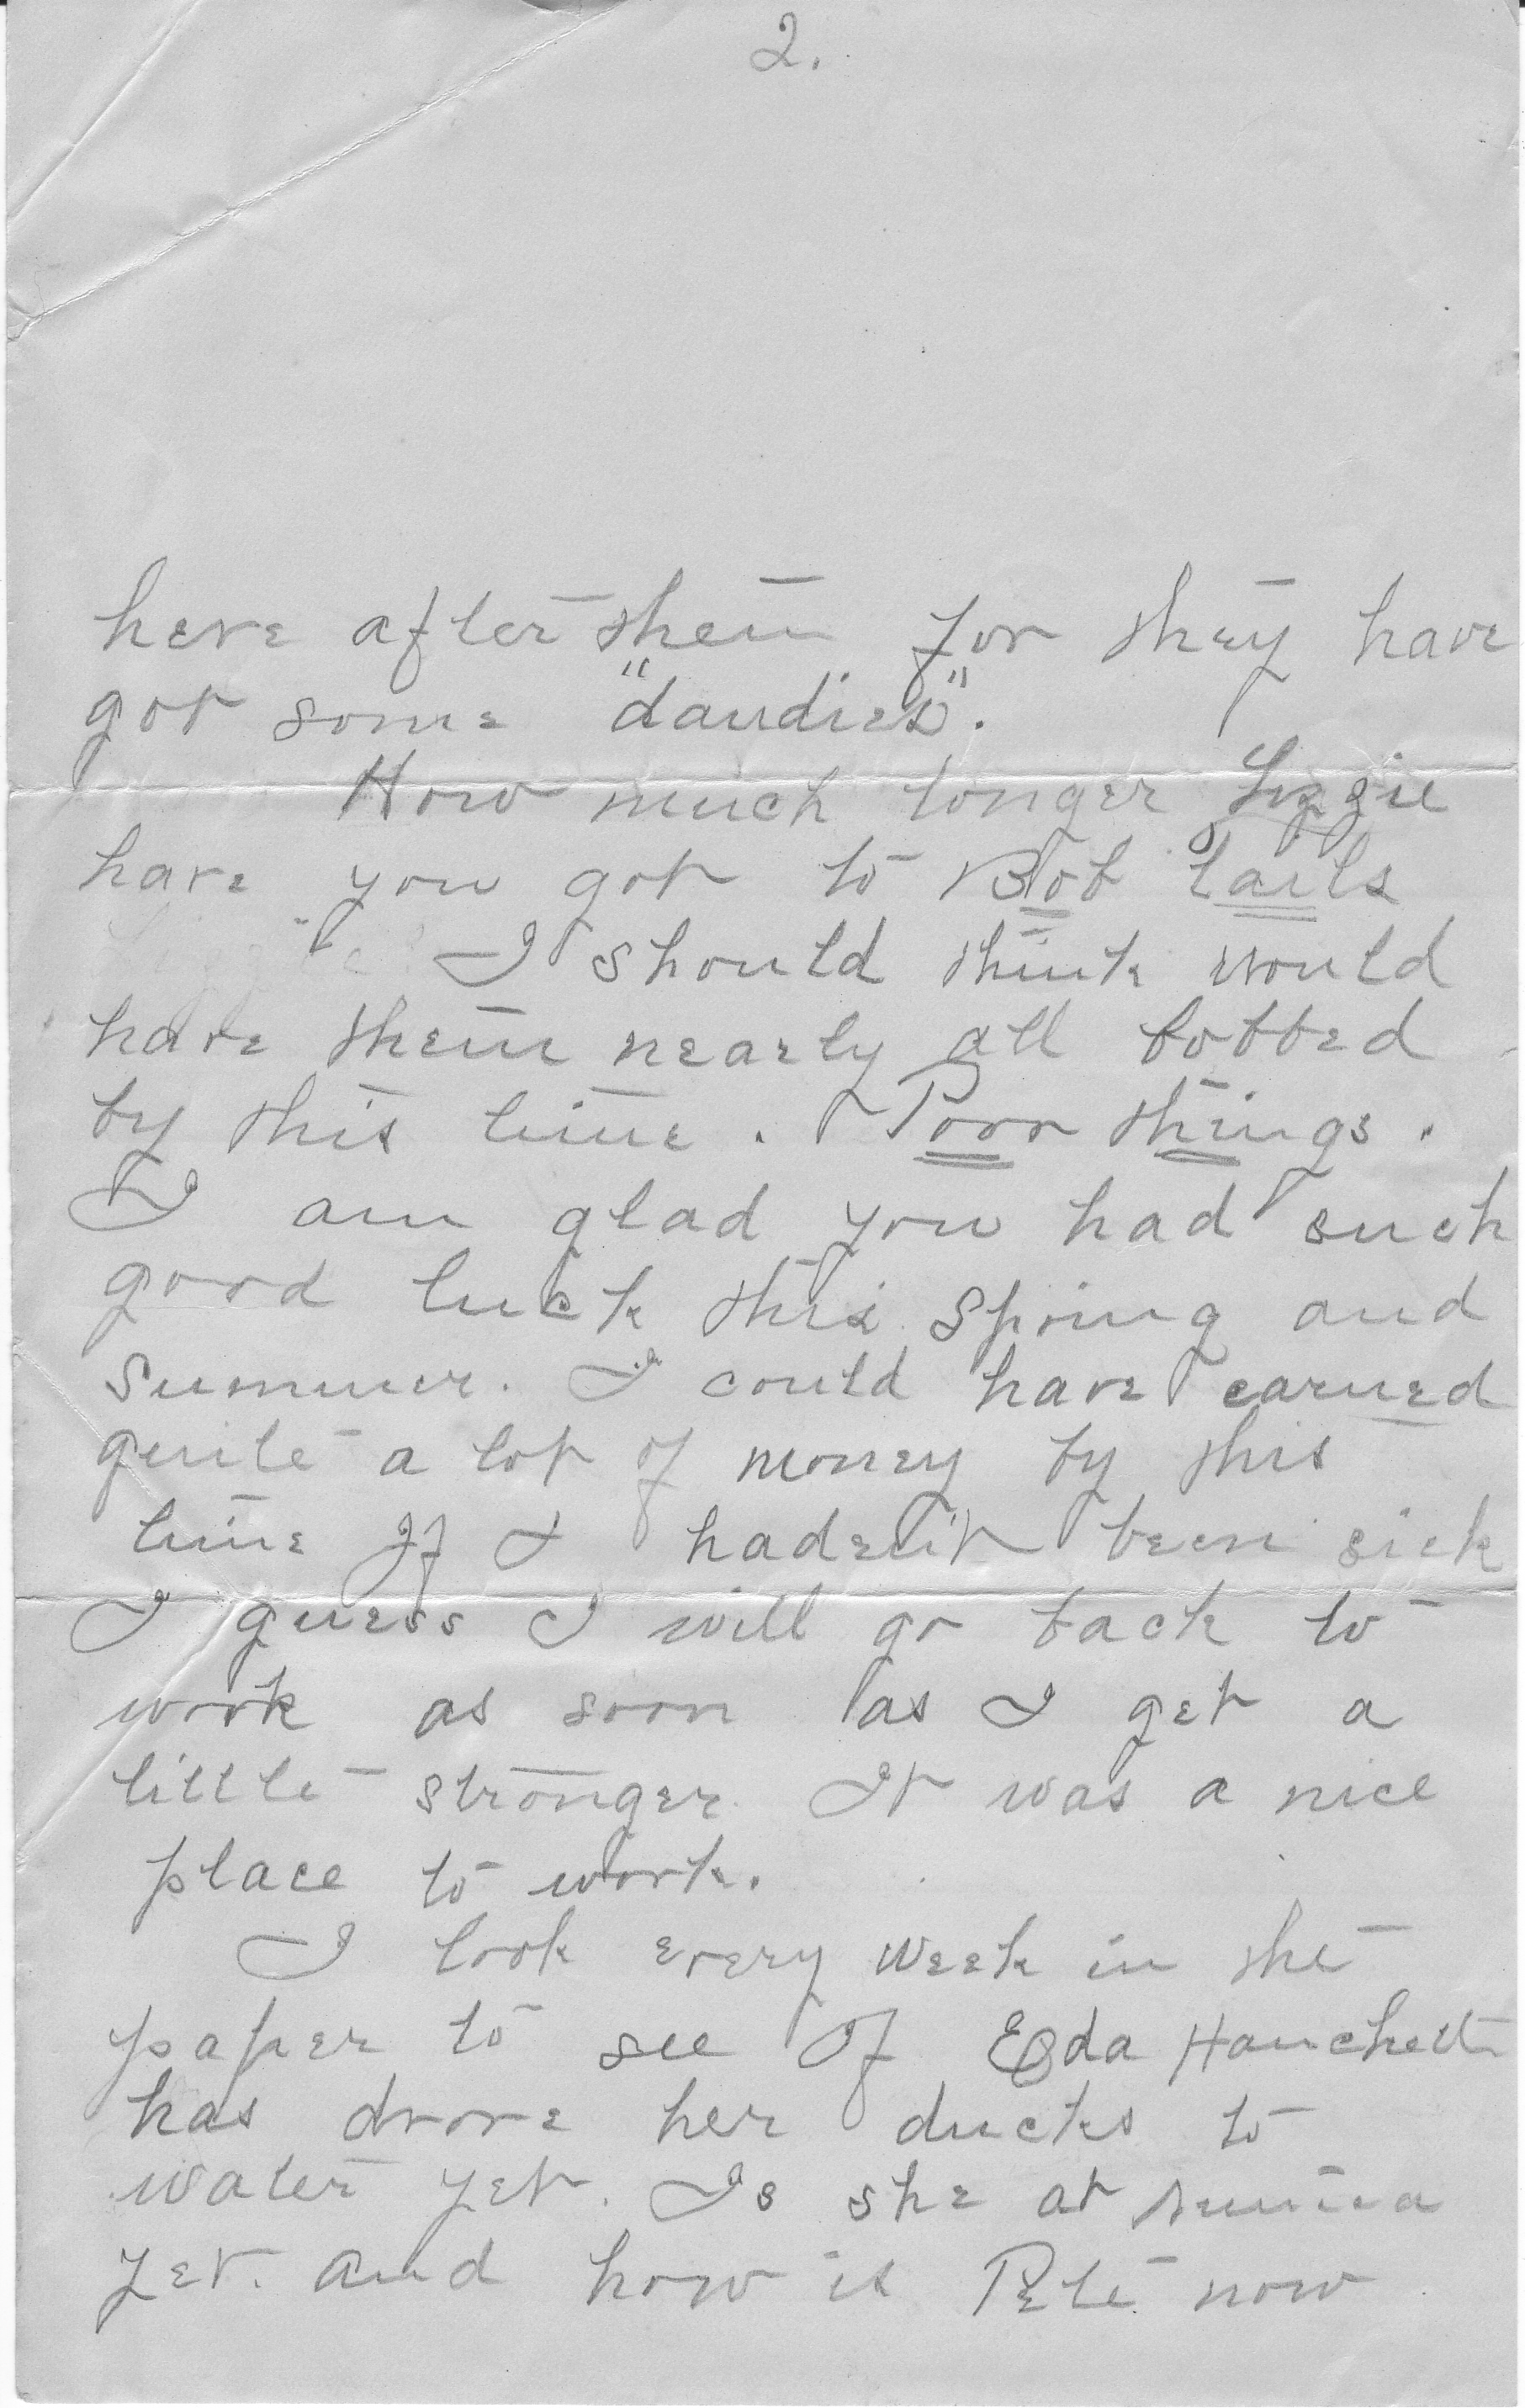 2.
here after them for they have
got some "dandies".
How much longer Lizzie
have you got to Bob tails
I should think would
have them nearly all bobbed
by this time. Poor things.
I am glad you had such
good luck this Spring and
Summer. I could have earned
quite a lot of money by this
time If I hadent been sick
I guess I will go back to
work as soon as I get a
little stronger. It was a nice
place to work.
I look every week in the
paper to see If Eda Hanchett
has drove her ducks to
water yet. Is she at
yet. and how is Pete now